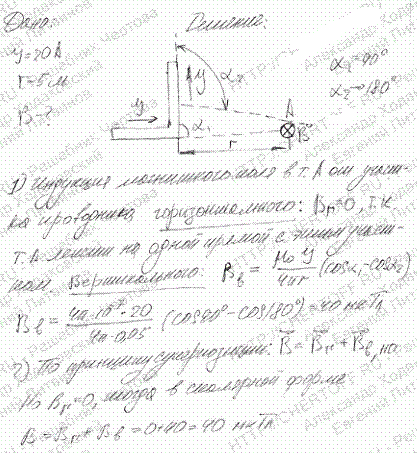 Дано:
Решение:
I=20A
r=5 м
B-?
I
I
α₂
α₁
A
B
r
α₁=90°
α₂→180°
1) Индукция магнитного поля в т. A от участ-
ка проводника горизонтального: Bг=0, т.к
т. A лежит на одной прямой с этим участ-
ком. Вертикального: Bв = μ₀ I / 4πr (cosα₁-cosα₂)
Bв = 4π·10⁻⁷·20 / 4π·0,05 (cos90°-cos180°)=40 мкТл
2) По принципу суперпозиции: B=Bг+Bв, но
Но Bг=0, тогда в скалярной форме
B=Bг+Bв=0+40=40 мкТл